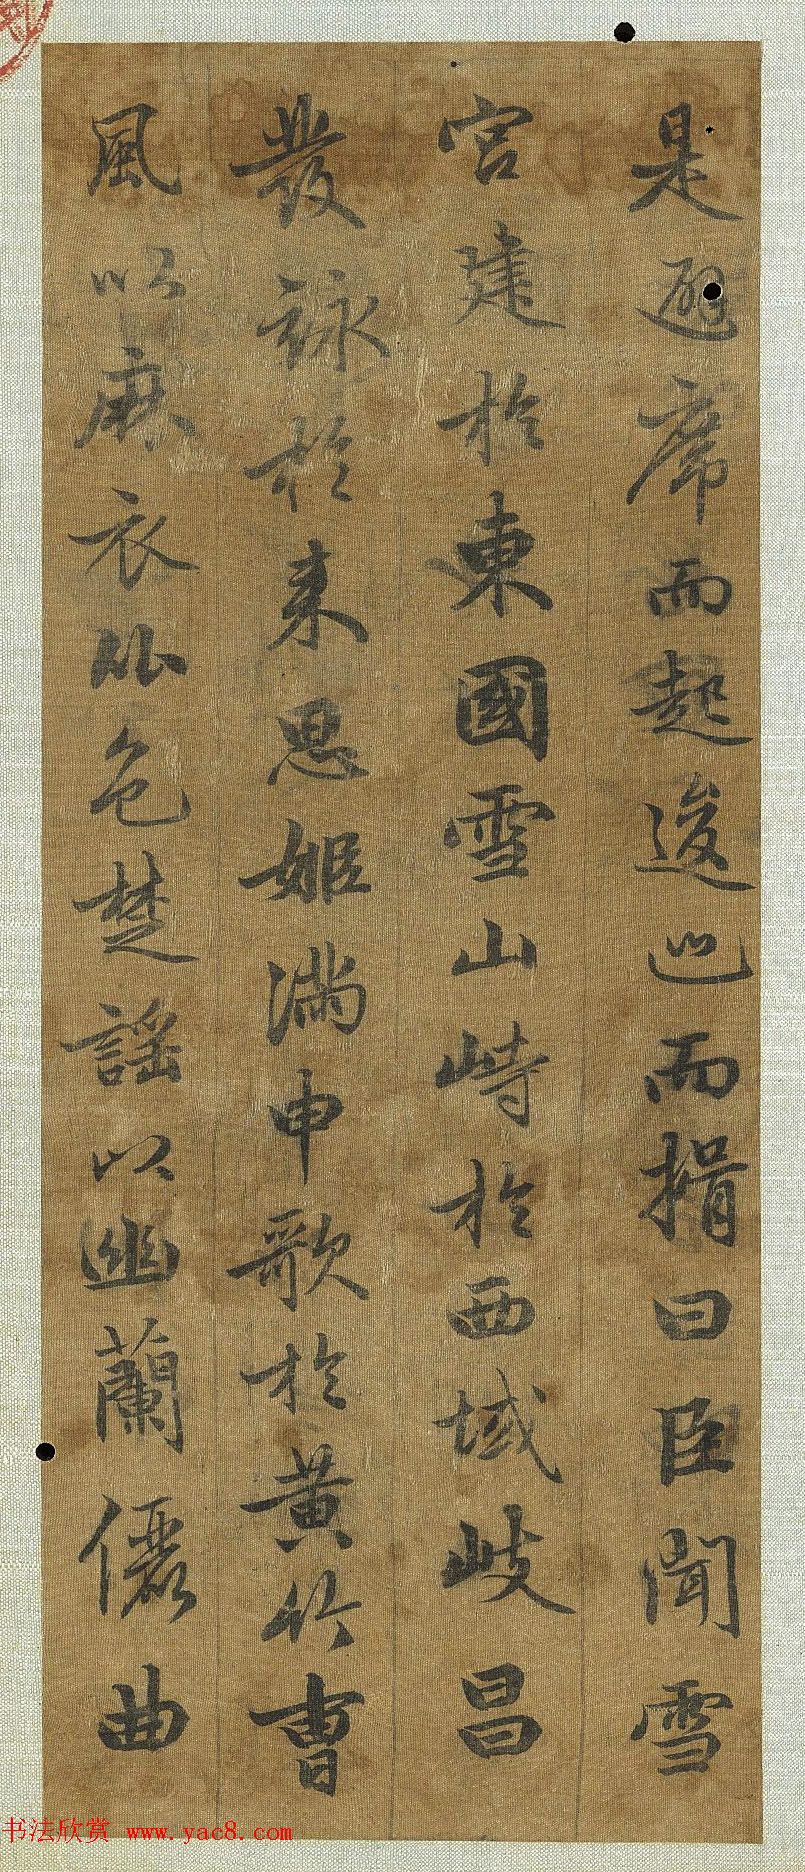 是避席而起逡巡而揖曰臣聞雪
宮建於東國雪山峙於西域岐昌
發詠於来思姬滿申歌於黃竹曹
風以麻衣比色楚謠以幽蘭儷曲
书法欣赏 www.yac8.com